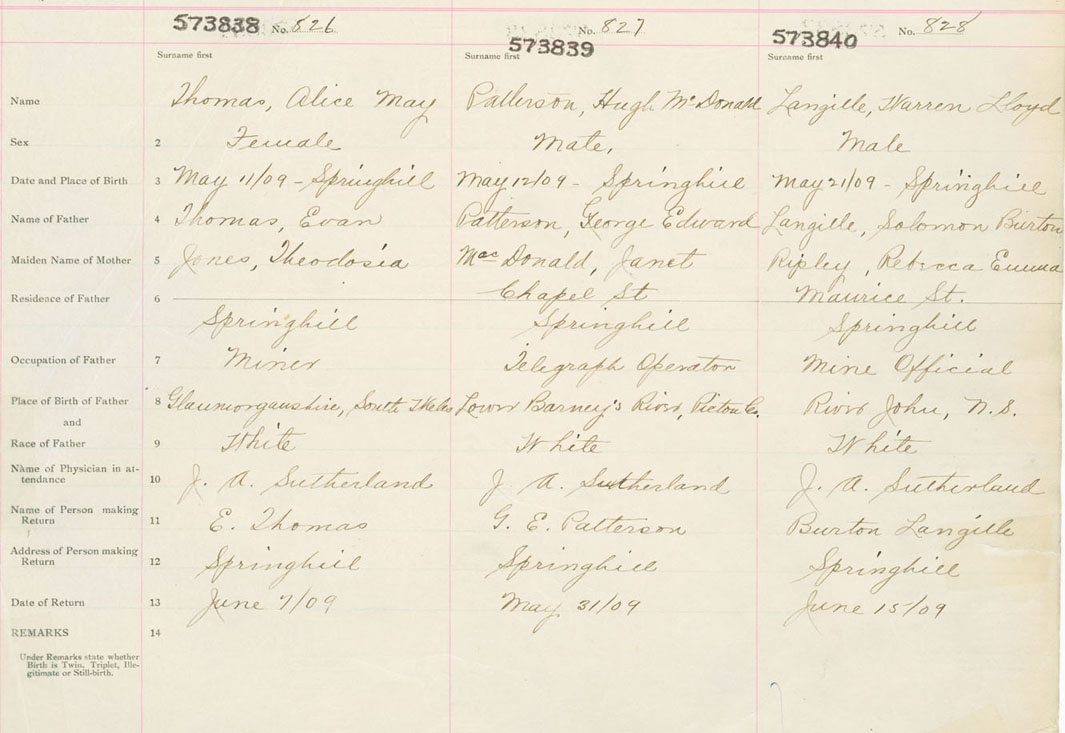 573838 No. 826 573839 No. 827 573840 No. 828
Surname first Surname first Surname first
Name Thomas, Alice May Patterson, Hugh McDonald Langille, Warren Lloyd
Sex 2 Female Male, Male
Date and Place of Birth 3 May 11/09 - Springhill May 12/09 - Springhill May 21/09 - Springhill
Name of Father 4 Thomas, Evan Patterson, George Edward Langille, Solomon Burton
Maiden Name of Mother 5 Jones, Theodosia MacDonald, Janet Ripley, Rebecca Emma
Residence of Father 6 Chapel St Maurice St.
Springhill Springhill Springhill
Occupation of Father 7 Miner Telegraph Operator Mine Official
Place of Birth of Father 8 Glaumorganshire, South Wales Lower Barney's River, Pictou Co. River John, N.S.
and
Race of Father 9 White White White
Name of Physician in at-
tendance 10 J. A. Sutherland J. A. Sutherland J. A. Sutherland
Name of Person making
Return 11 E. Thomas G. E. Patterson Burton Langille
Address of Person making
Return 12 Springhill Springhill Springhill
Date of Return 13 June 7/09 May 31/09 June 15/09
REMARKS 14
Under Remarks state whether
Birth is Twin, Triplet, Ille-
gitimate or Still-birth.